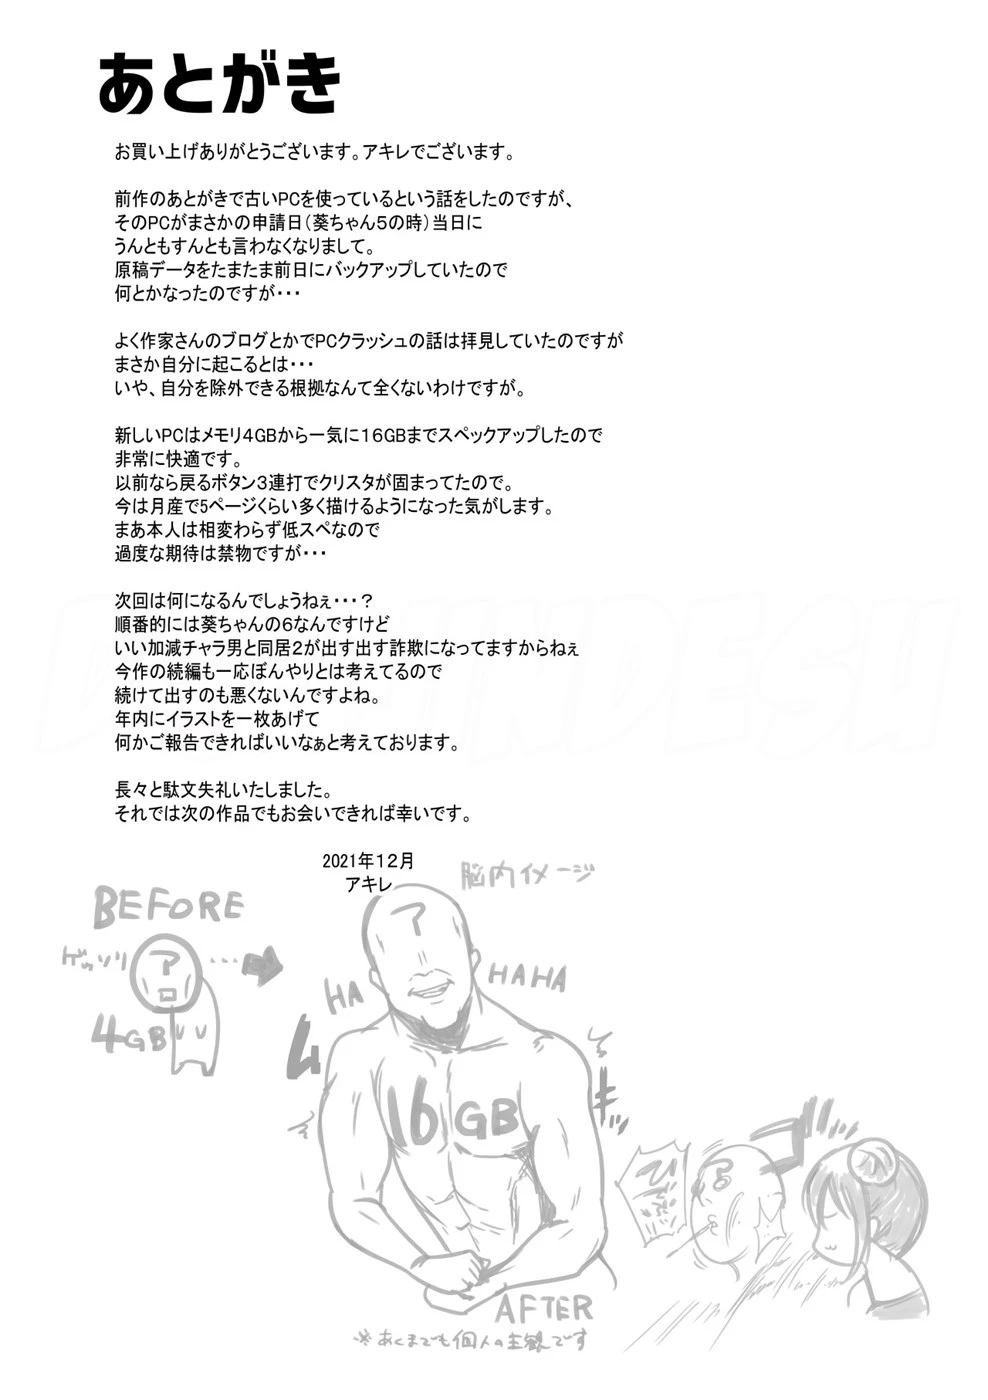 あとがき
お買い上げありがとうございます。アキレでございます。
前作のあとがきで古いPCを使っているという話をしたのですが、
そのPCがまさかの申請日(葵ちゃん５の時)当日に
うんともすんとも言わなくなりまして。
原稿データをたまたま前日にバックアップしていたので
何とかなったのですが・・・
よく作家さんのブログとかでPCクラッシュの話は拝見していたのですが
まさか自分に起こるとは・・・
いや、自分を除外できる根拠なんて全くないわけですが。
新しいPCはメモリ４GBから一気に１６GBまでスペックアップしたので
非常に快適です。
以前なら戻るボタン３連打でクリスタが固まってたので。
今は月産で5ページくらい多く描けるようになった気がします。
まあ本人は相変わらず低スペなので
過度な期待は禁物ですが・・・
次回は何になるんでしょうねぇ・・・？
順番的には葵ちゃんの６なんですけど
いい加減チャラ男と同居２が出す出す詐欺になってますからねぇ
今作の続編も一応ぼんやりとは考えてるので
続けて出すのも悪くないんですよね。
年内にイラストを一枚あげて
何かご報告できればいいなぁと考えております。
長々と駄文失礼いたしました。
それでは次の作品でもお会いできれば幸いです。
2021年１２月
アキレ
脳内イメージ
BEFORE
ゲッソリ
ア
4GB
ア
HA
HAHA
ム
キッ
16GB
AFTER
※あくまでも個人の主観です
ゴ